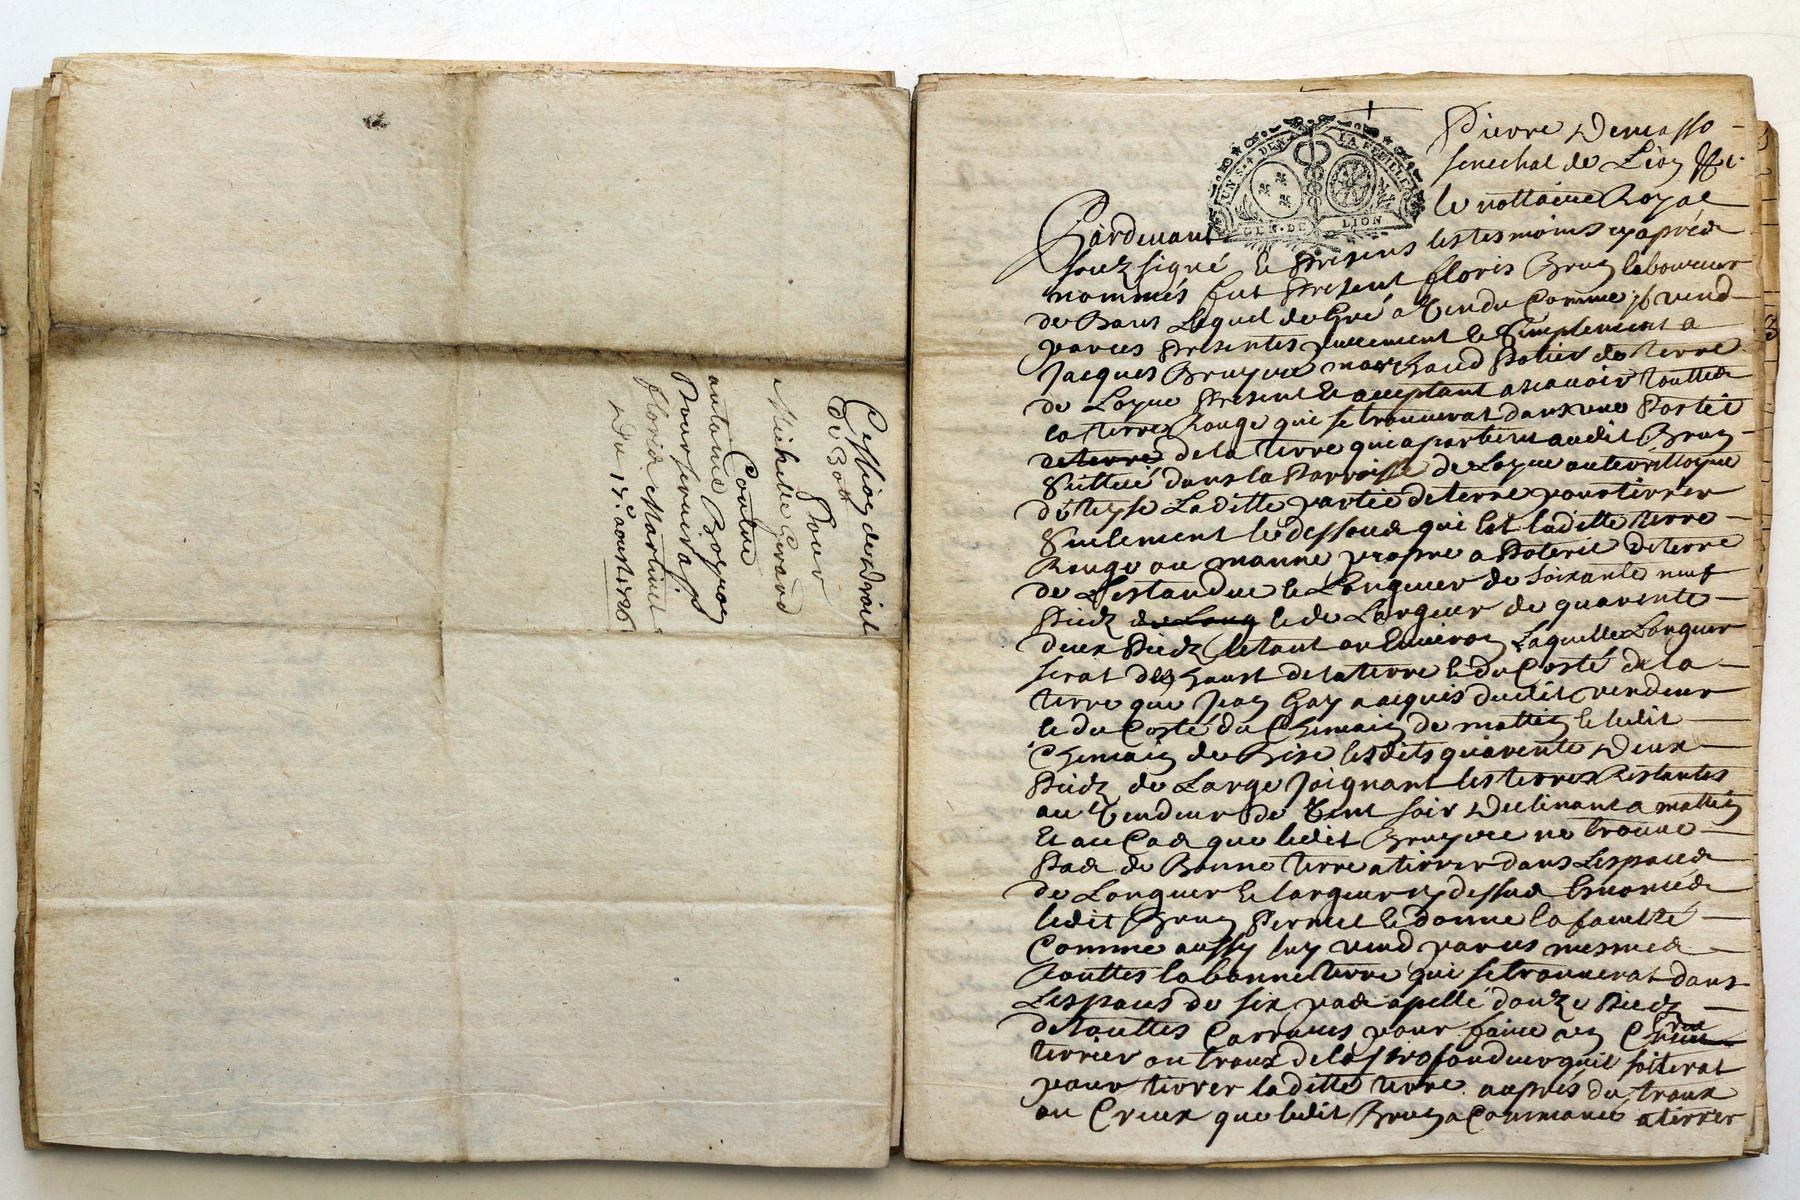 Cession de droit
de 30ll
Pour
Michelle Gerard
Contre
antoine
floris Martinet
Du 17e aoust 1726
UN S. 4 DEN. LA FEUILLE
GEN. DE LION
Pierre Demasso
senechal de Lion &c.
Pardevant le nottaire Royal
souz signé et Presens les tesmoins cy aprés
nommés fut Present floris Brun laboureur
de Bans Lequel de Gré a Vendu Comme il vend
par ces Presentes purement et Simplement a
Jacques Bruyere marchand Potier de terre
de Loyre Present et acceptant ascavoir toutte
la terre Rouge qui se trouverat dans une Partie
de terre de la terre que apartient audit Brun
Situé dans la Parroisse de Loyre au territoyre
de Laditte partie de terre pour tirrer
Seulement le dessous qui Est laditte terre
Rouge ou manne propre a Poterie de terre
de L'estandue et Longueur de soixante neuf
Piedz de Long et de Largeur de quarente
deux Piedz Le tout ou Environ Laquelle Longueur
serat du haut de la terre et du Costé de la
terre que Jean Gay a acquis dudit vendeur
et du Costé du Chemain de mattin et ledit
Chemain de Bise lesdits quarente Deux
Piedz de Large Joignant les terres Restantes
au Vendeur de Vent soir Declinant a mattin
Et au Cas que ledit Bruyere ne trouve
Pas de Bonne terre a tirrer dans L'espace
de Longueur et largeur cy dessus Enoncée
ledit Brun Permet et donne la faculté
Comme aussy luy vend par ces mesmes
touttes la bonne terre qui se trouverat dans
L'espace de six pas apellé douze Piedz
de touttes Carrures pour faire un Creux
terrier ou troux de la profondeur quil soitterat
pour tirrer laditte terre auprés du troux
ou Creux que ledit Brun a Commancé a tirrer